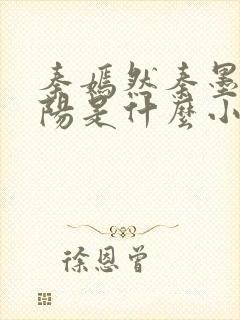 秦嫣然秦墨
阳是什麼小
徐恩曾